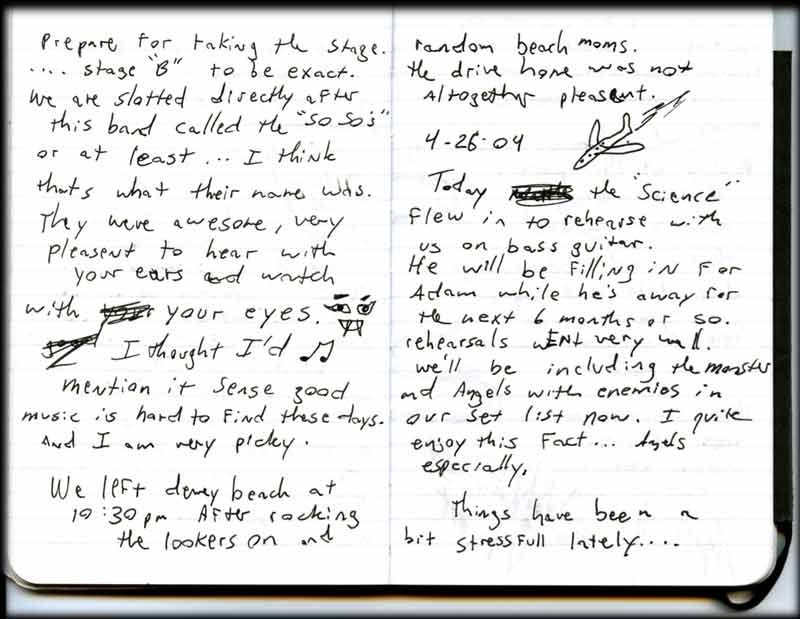 prepare for taking the stage.
.... stage "B" to be exact.
we are slotted directly after
this band called the "so so's"
or at least... I think
thats what their name was.
They were awesome, very
pleasent to hear with
your ears and watch
with your eyes.
I thought I'd
mention it sense good
music is hard to find these days.
And I am very picky.
We left dewey beach at
10:30 pm After rocking
the lookers on and
random beach moms.
the drive home was not
Altogether pleasent.
4-26-04
Today the "Science"
flew in to rehearse with
us on bass guitar.
He will be filling in for
Adam while he's away for
the next 6 months or so.
rehearsals wENt very well.
we'll be including the monster
and Angels with enemies in
our set list now. I quite
enjoy this fact... Angels
especially.
things have been a
bit stressfull lately....